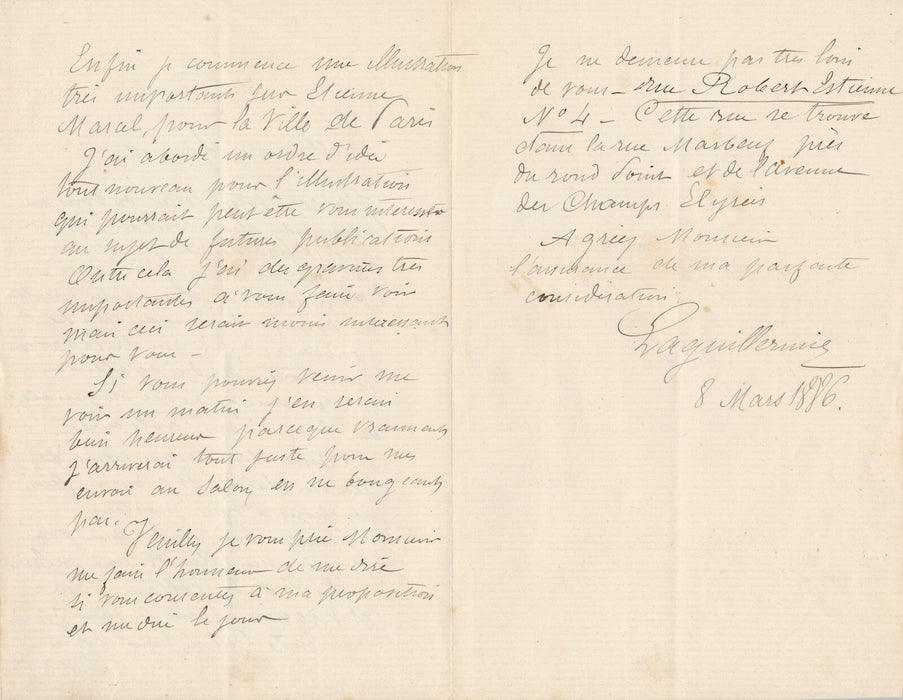 Enfin je commence une illustration
très importante sur Etienne
Marcel, pour la Ville de Paris
J'ai abordé un ordre d'idée
tout nouveau pour l'illustration
qui pourrait peut être vous intéresser
au sujet de futures publications
Outre cela j'ai des gravures très
importantes à vous faire voir
mais ceci serait moins intéressant
pour vous –
Si vous pouviez venir me
voir un matin j'en serais
bien heureux parceque vraiment
j'arriverai tout juste pour mes
envois au Salon, en ne bougeant
pas.
Veuillez je vous prie Monsieur
me faire l'honneur de me dire
si vous consentez à ma proposition
et me dire le jour
Je ne demeure pas très loin
de vous – rue Robert Estienne
No 4 – Cette rue se trouve
dans la rue Marbeuf près
du rond Point et de l'avenue
des Champs Elysées
Agréez Monsieur
l'assurance de ma parfaite
considération.
Laguillermie
8 Mars 1886.